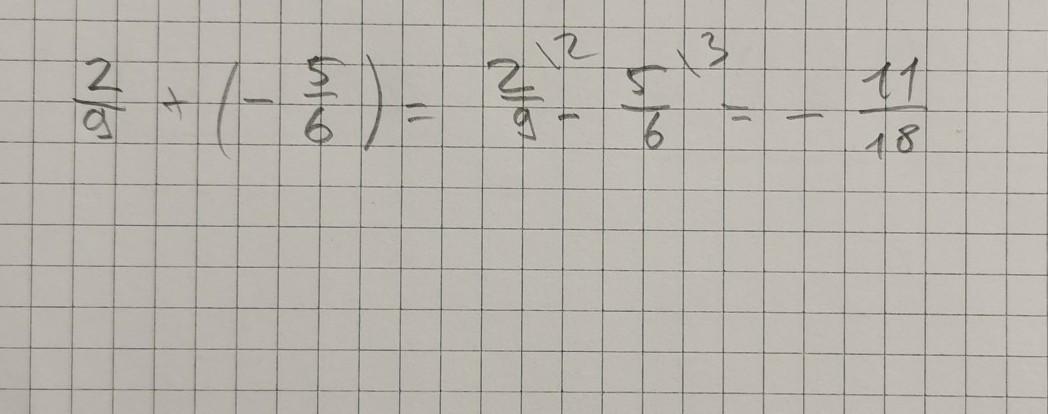 2/9 + (- 5/6) = 2/9 \2 - 5/6 \3 = - 11/18